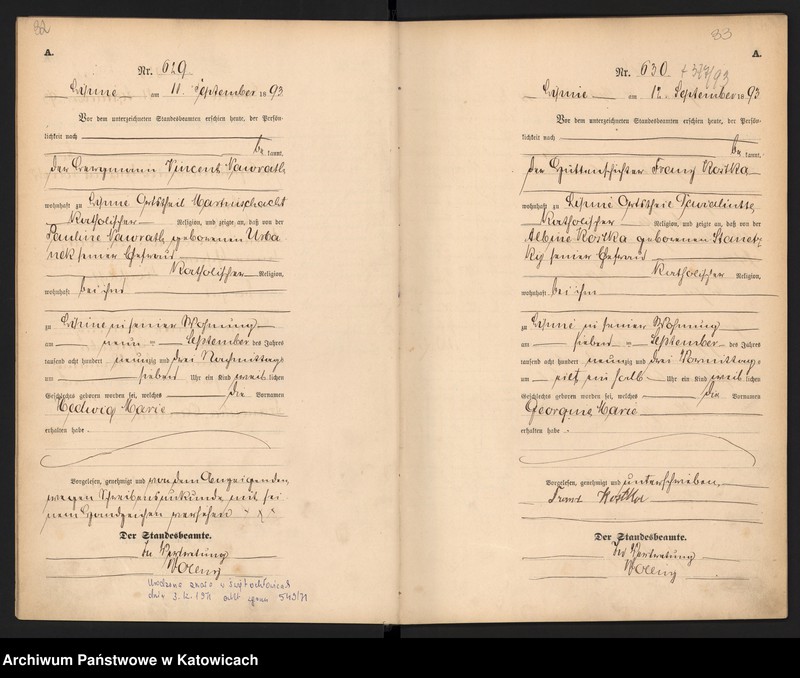 82
A.
Nr. 629
Lipine am 11. September 1893
Vor dem unterzeichneten Standesbeamten erschien heute, der Persön-
lichkeit nach
be kannt,
der Bergmann Vincent Nawrath
wohnhaft zu Lipine Ortstheil Martinschacht
Katholischer Religion, und zeigte an, daß von der
Pauline Nawrath geborenen Urba
nek seiner Ehefrau
Katholischer Religion,
wohnhaft bei ihm
zu Lipine in seiner Wohnung
am neun = September des Jahres
tausend acht hundert neunzig und drei Nachmittags
um sieben Uhr ein Kind weib lichen
Geschlechts geboren worden sei, welches die Vornamen
Hedwig Marie
erhalten habe.
Vorgelesen, genehmigt und von dem Anzeigenden
wegen Schreibensunkunde mit sei
nem Handzeichen versehen
Der Standesbeamte.
In Vertretung
dnia 3.12.1971 akt zgonu 549/71
83
A.
Nr. 630
Lipine am 12. September 1893
Vor dem unterzeichneten Standesbeamten erschien heute, der Persön-
lichkeit nach
be kannt,
der Hüttenarbeiter Franz Kostka
wohnhaft zu Lipine Ortstheil
Katholischer Religion, und zeigte an, daß von der
Albine Kostka geborenen
seiner Ehefrau
Katholischer Religion,
wohnhaft bei ihm
zu Lipine in seiner Wohnung
am sieben = September des Jahres
tausend acht hundert neunzig und drei Vormittags
um elf ein halb Uhr ein Kind weib lichen
Geschlechts geboren worden sei, welches die Vornamen
Georgine Marie
erhalten habe.
Vorgelesen, genehmigt und unterschrieben
Franz Kostka
Der Standesbeamte.
In Vertretung
Archiwum Państwowe w Katowicach